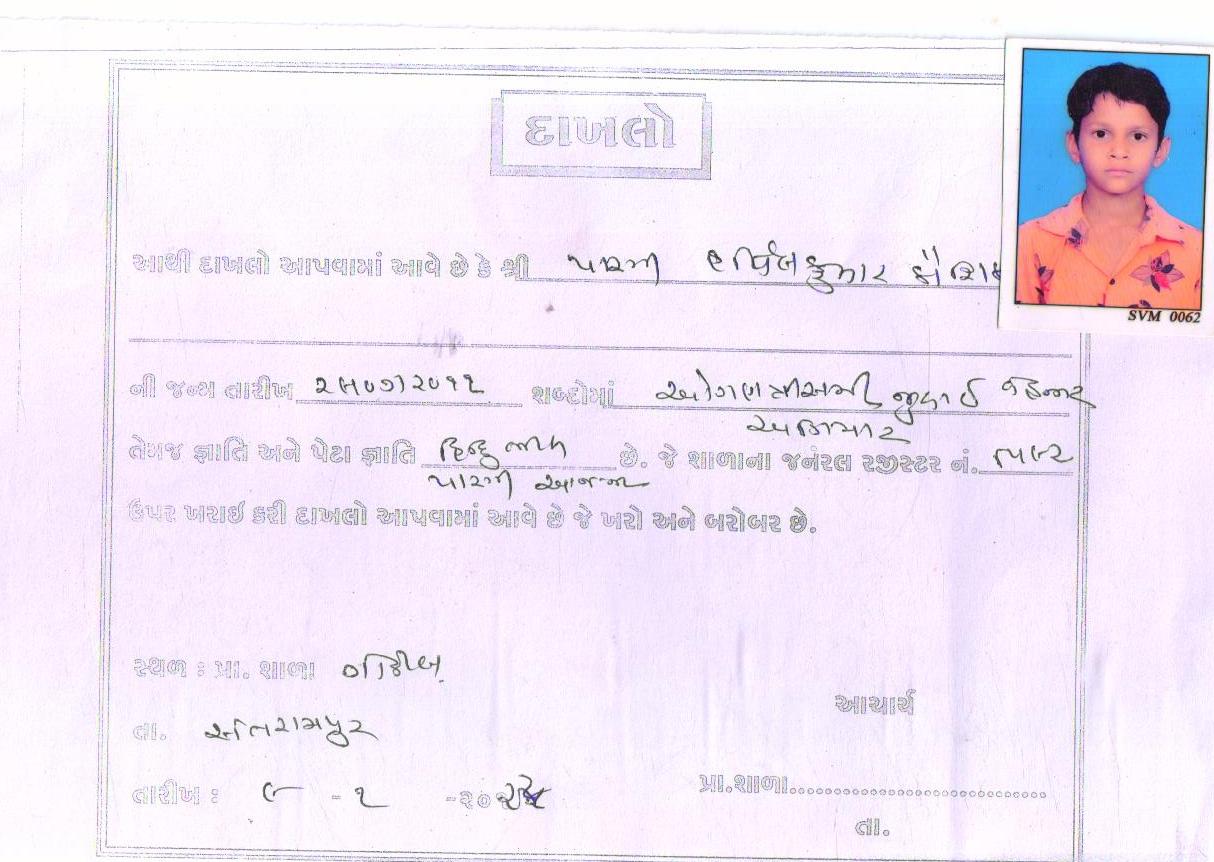 દાખલો
આથી દાખલો આપવામાં આવે છે કે શ્રી પારગી હર્ષિલકુમાર
SVM 0062
ની જન્મ તારીખ ૨૯૦૭૨૦૧૧ શબ્દોમાં ઓગણત્રીસમી જુલાઈ બે હજાર
અગિયાર
તેમજ જ્ઞાતિ અને પેટા જ્ઞાતિ હિન્દુ ભીલ છે. જે શાળાના જનરલ રજીસ્ટર નં.
પારગી
ઉપર ખરાઇ કરી દાખલો આપવામાં આવે છે જે ખરો અને બરોબર છે.
સ્થળ : પ્રા. શાળા
આચાર્ય
તા. સંતરામપુર
પ્રા.શાળા..............................
તારીખ : ૯ - ૧
તા.